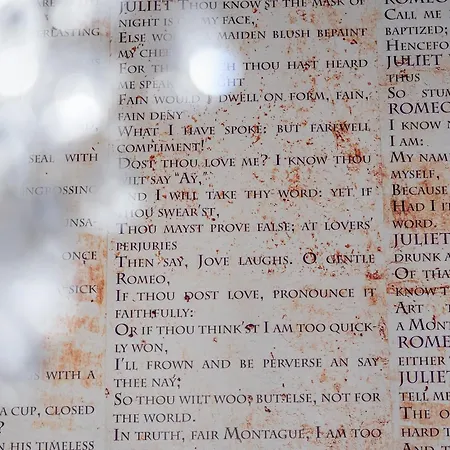 EVERLASTING
SEAL WITH
ENGROSSING
ONCE
SICK
WITH A
A CUP, CLOSED
?
HIS TIMELESS
JULIET Thou know'st the mask of
night is on my face,
Else would a maiden blush bepaint
my cheek
For that which thou hast heard
me speak to-night
Fain would I dwell on form, fain,
fain deny
What I have spoke: but farewell
compliment!
Dost thou love me? I know thou
wilt say "Ay,"
And I will take thy word: yet if
thou swear'st,
Thou mayst prove false; at lovers'
perjuries
Then say, Jove laughs. O gentle
Romeo,
If thou dost love, pronounce it
faithfully:
Or if thou think'st I am too quick-
ly won,
I'll frown and be perverse an say
thee nay;
So thou wilt woo; but else, not for
the world.
In truth, fair Montague, I am too
ROMEO
Call me
baptized;
Hencefo
JULIET
thus
So stum
ROMEO
I know n
I am:
My nam
myself,
Because
Had I it
word.
JULIET
drunk a
Of tha
know t
Art t
a Mont
ROME
either t
JULIET
tell me
The o
hard t
And t